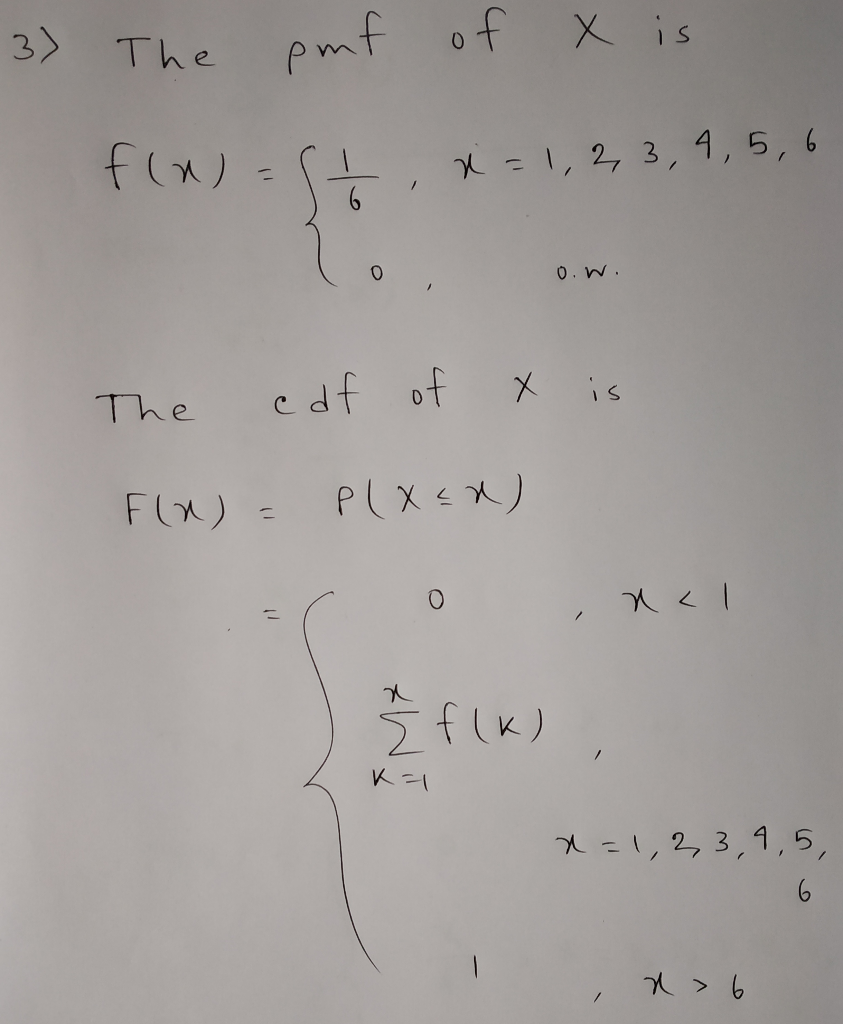 3) The pmf of X is
f(x) = { 1/6 , x = 1, 2, 3, 4, 5, 6
0 , o.w.
The cdf of X is
F(x) = P(X ≤ x)
= { 0 , x < 1
x
Σ f(k) ,
k=1
x = 1, 2, 3, 4, 5,
6
1 , x > 6